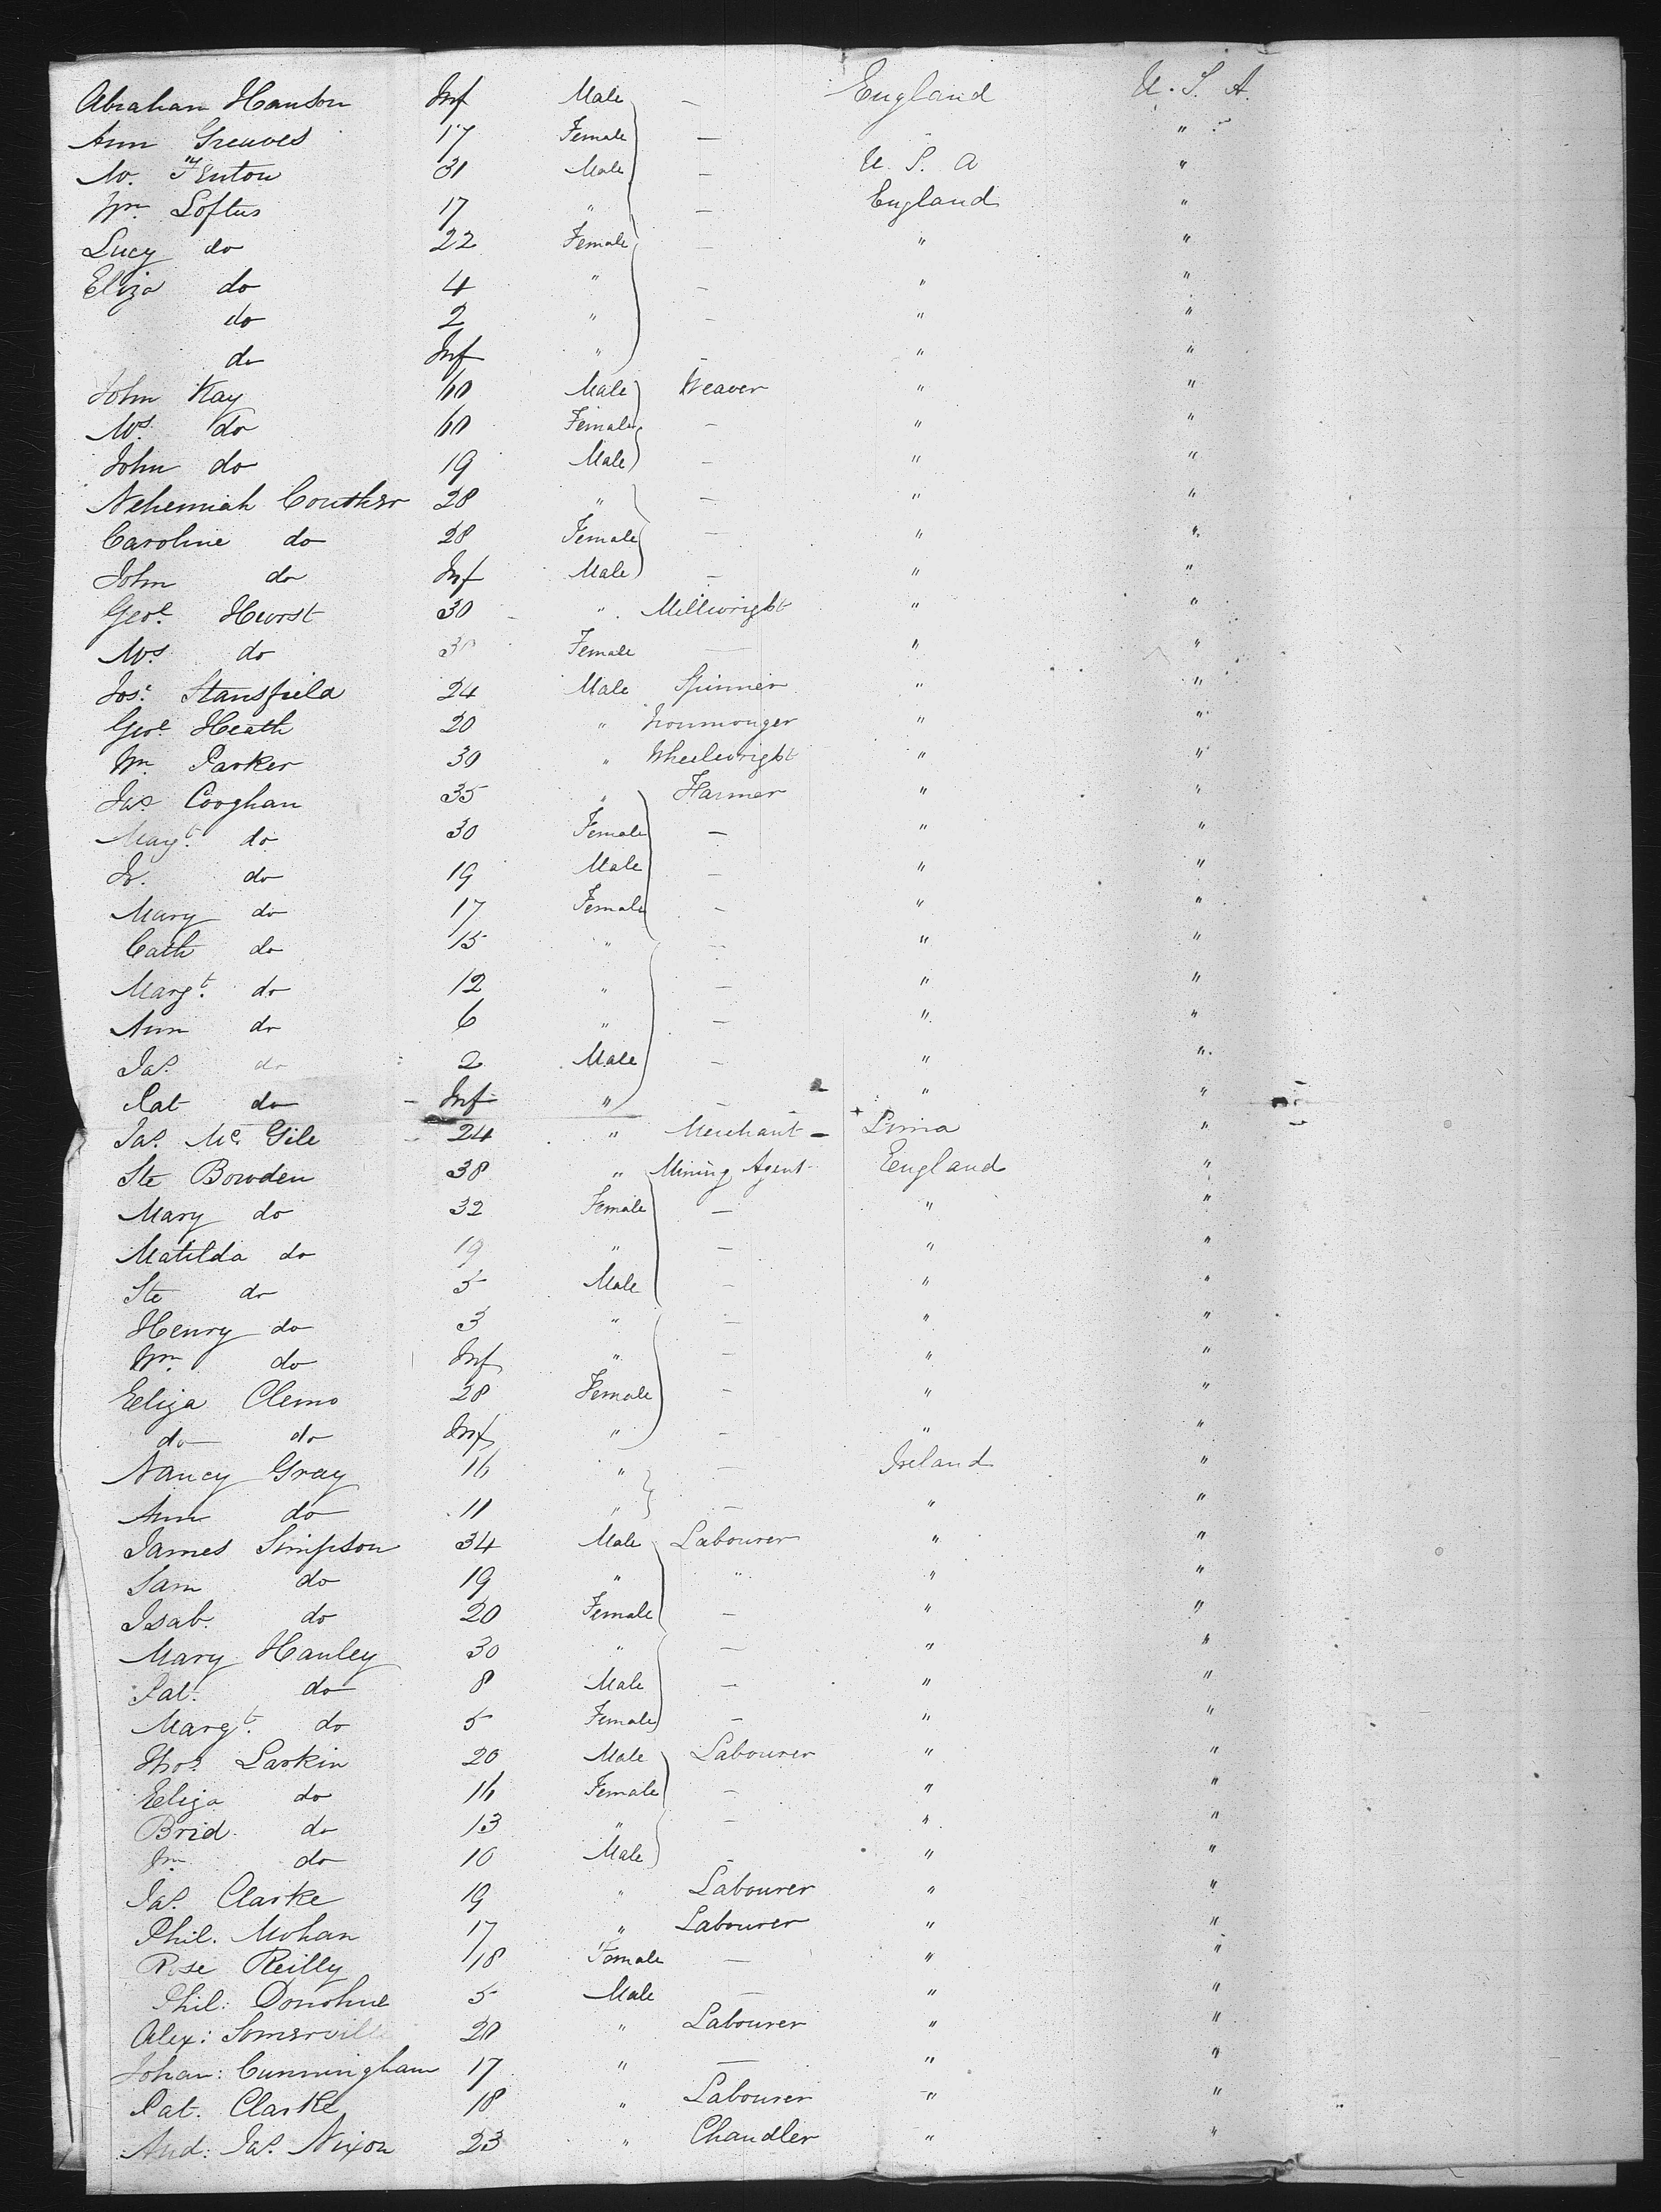 Abraham Hanson Inf Male — England U. S. A.
Ann Greaves 17 Female — " "
M. Fenton 31 Male — U S. A "
Wm Loftus 17 " — England "
Lucy do 22 Female — " "
Eliza do 4 " — " "
do 2 " — " "
do Inf " — " "
John Kay 60 Male Weaver " "
Mrs. do 60 Female — " "
John do 19 Male — " "
Nehemiah 28 " — " "
Caroline do 28 Female — " "
John do Inf Male — " "
Geoe. Hurst 30 " Millwright " "
Mrs. do 30 Female — " "
Jos. Stansfield 24 Male Spinner " "
Geoe. Heath 20 " Ironmonger " "
Wm. Parker 30 " Wheelwright " "
Jas. Cooghan 35 " Farmer " "
Magt. do 30 Female — " "
Jo. do 19 Male — " "
Mary do 17 Female — " "
Cath do 15 " — " "
Margt. do 12 " — " "
Ann do 6 " — " "
Jas. do 2 Male — " "
Pat do Inf " — " "
Jas. Mc Gile 24 " Merchant — Lima "
Ste Bowden 38 " Mining Agent England "
Mary do 32 Female — " "
Matilda do 19 " — " "
Ste do 5 Male — " "
Henry do 3 " — " "
Wm. do Inf " — " "
Eliza Clemo 28 Female — " "
do do Inf " — " "
Nancy Gray 16 " — Ireland "
Ann do 11 " — " "
James Simpson 34 Male Labourer " "
Sam do 19 " " " "
Isab. do 20 Female — " "
Mary Hanley 30 " — " "
Pat. do 8 Male — " "
Margt. do 5 Female — " "
Thos. Larkin 20 Male Labourer " "
Eliza do 16 Female — " "
Brid. do 13 " — " "
Jn. do 10 Male — " "
Jas. Clarke 19 " Labourer " "
Phil. Mohan 17 " Labourer " "
Rose Reilly 18 Female — " "
Phil: Donohue 5 Male — " "
Alex: Somerville 20 " Labourer " "
Johan: Cunningham 17 " — " "
Pat. Clarke 18 " Labourer " "
And: Jas. Nixon 23 " Chandler " "